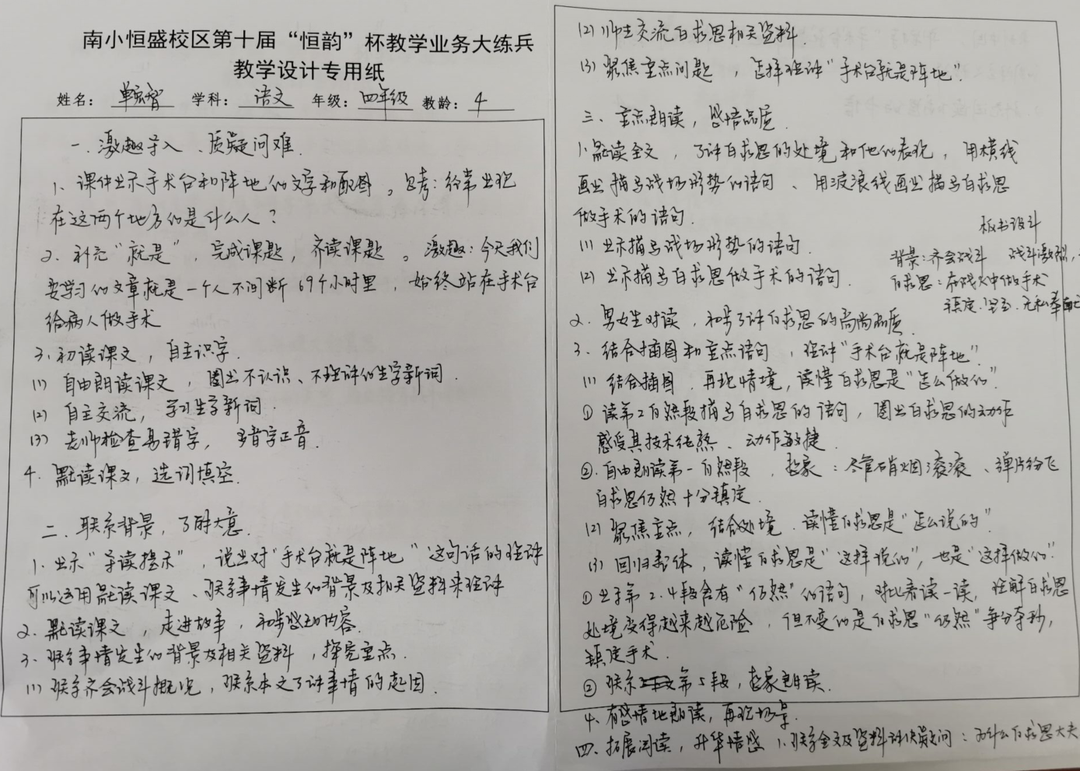 南小恒盛校区第十届“恒韵”杯教学业务大练兵
教学设计专用纸
姓名： 学科：语文 年级：四年级 教龄：4
一、激趣导入、质疑问难.
1、课件出示手术台和阵地的文字和配图。思考：经常出现
在这两个地方的是什么人？
2、补充“就是”，完成课题，齐读课题。激趣：今天我们
要学习的文章就是一个人不间断69个小时里，始终站在手术台
给病人做手术
3、初读课文，自主识字.
(1) 自由朗读课文，圈出不认识、不理解的生字新词.
(2) 自主交流，学习生字新词.
(3) 老师检查易错字，多音字正音.
4、默读课文，选词填空.
二、联系背景，了解大意.
1、出示“导读提示”，说出对“手术台就是阵地”这句话的理解
可以运用默读课文、联系事情发生的背景及相关资料来理解
2、默读课文，走进故事，初步感知内容.
3、联系事情发生的背景及相关资料，探究重点.
(1) 联系齐会战斗概况，联系本文了解事情的起因.
(2) 师生交流白求恩相关资料.
(3) 聚焦重点问题，怎样理解“手术台就是阵地”?
三、重点朗读，感悟品质.
1、默读全文，了解白求恩的处境和他的表现，用横线
画出描写战场形势的语句、用波浪线画出描写白求恩
做手术的语句.
(1) 出示描写战场形势的语句.
(2) 出示描写白求恩做手术的语句.
板书设计
背景：齐会战斗 战斗激烈
白求恩：在战火中做手术
镇定、坚定、无私奉献
2、男女生对读，初步了解白求恩的高尚品质.
3、结合插图和重点语句，理解“手术台就是阵地”.
(1) 结合插图，再现情境，读懂白求恩是“怎么做的”
① 读第2自然段描写白求恩的语句，圈出白求恩的动作
感受其技术纯熟、动作敏捷.
②、自由朗读第一自然段，想象：尽管硝烟滚滚、弹片纷飞
白求恩仍然十分镇定.
(2) 聚焦重点，结合处境，读懂白求恩是“怎么说的”
(3) 回归整体，读懂白求恩是“这样说的”，也是“这样做的”
① 出示第2、4段含有“仍然”的语句，对比着读一读，理解白求恩
处境变得越来越危险，但不变的是白求恩“仍然”争分夺秒，
镇定手术.
② 联系第5段，想象朗读.
4、有感情地朗读，再现场景.
四、拓展阅读，升华情感 1、联系全文及资料解决疑问：为什么白求恩大夫